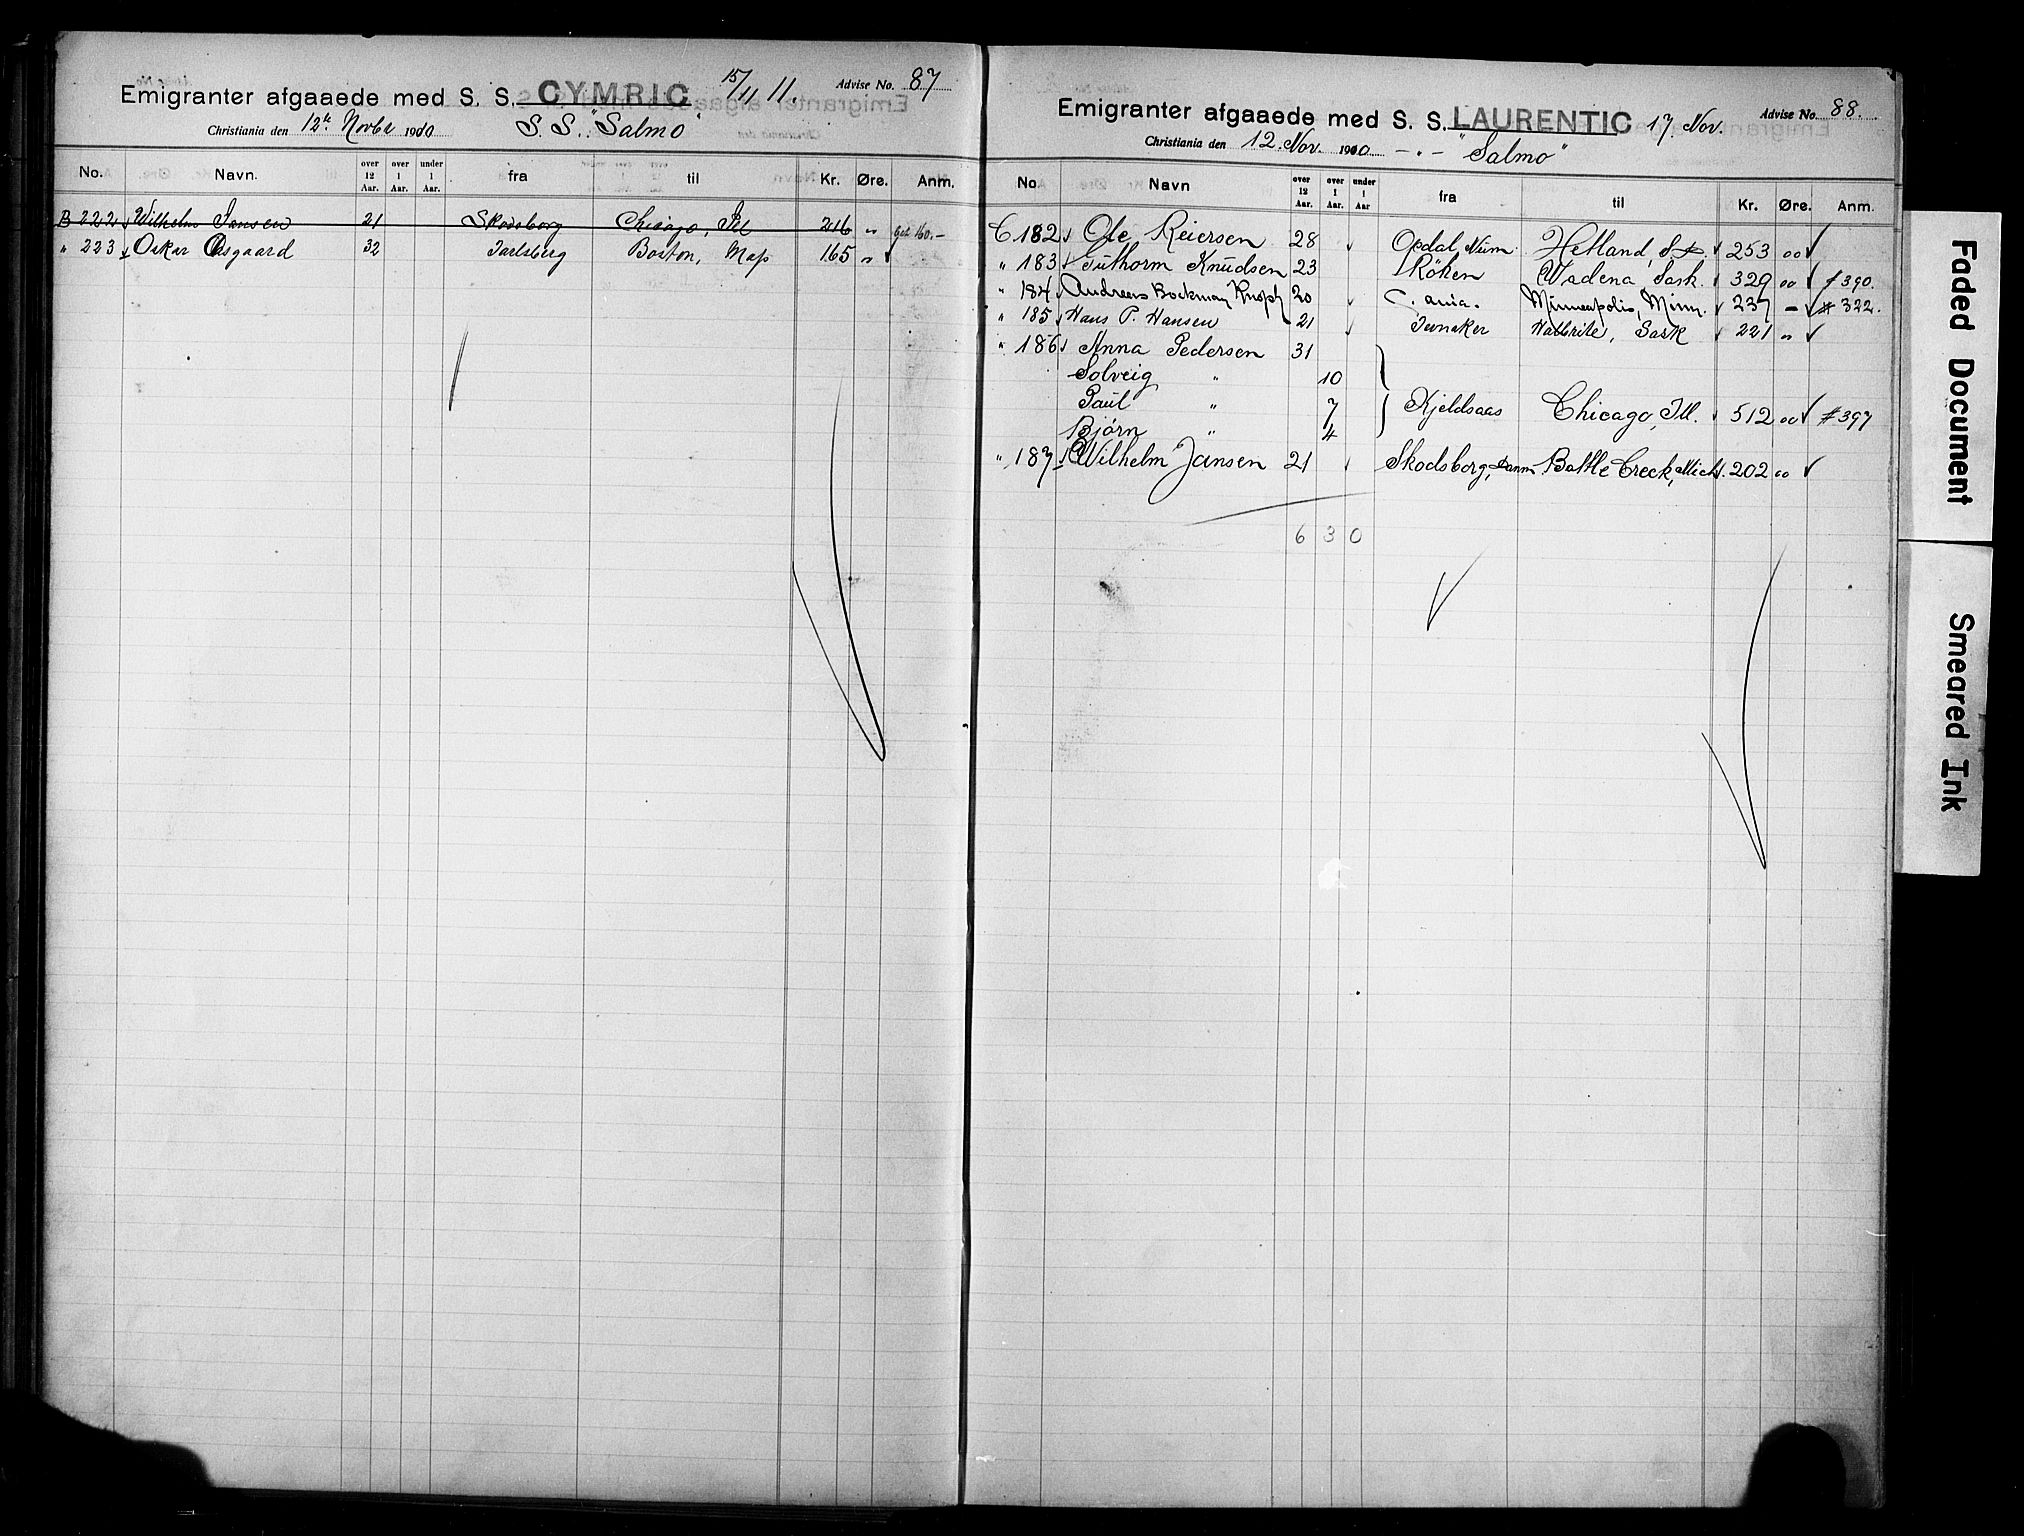 Emigranter afgaaede med S. S. CYMRIC 15/11 11. Advise No. 87
Christiania den 12te Novbr 1910 S. S. "Salmo"
No. Navn. over 12 Aar. over 1 Aar. under 1 Aar. fra til Kr. Øre. Anm.
B 222 Wilhelm Jansen 21 Skodsborg Chicago, Ill 216 " bet. 160.-
" 223 Oskar Aasgaard 32 Jarlsberg Boston, Mass 165 "
Emigranter afgaaede med S. S. LAURENTIC 17. Nov. Advise No. 88.
Christiania den 12. Nov. 1910 - " - "Salmo"
No. Navn over 12 Aar. over 1 Aar. under 1 Aar fra til Kr. Øre. Anm.
C 182 Ole Reiersen 28 Opdal, Num. Hetland, S.D. 253 00
" 183 Guthorm Knudsen 23 Röken Wadena, Sask. 329 00 # 390.
" 184 Andreas Bockman Knoph 20 C. ania. Minneapolis, Minn. 237 - # 322.
" 185 Hans P. Hansen 21 Jevnaker Halbrite, Sask 221 "
" 186 Anna Pedersen 31
Solveig " 10
Paul " 7 Kjeldsaas Chicago, Ill. 512 00 # 397
Bjørn " 4
" 187 Wilhelm Jansen 21 Skodsborg, Danm. Battle Creek, Mich. 202 00
6 3 0
Faded Document
Smeared Ink